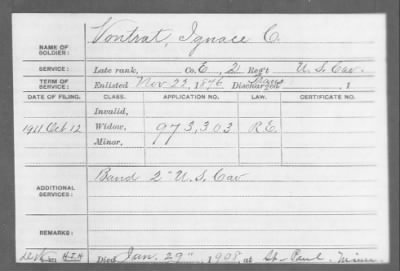 NAME OF SOLDIER: Vontrat, Ignace C.
SERVICE: Late rank, Co. E, 2 Reg't U.S. Cav.
TERM OF SERVICE: Enlisted Nov 22, 1876 Discharged , 1
DATE OF FILING. CLASS. APPLICATION NO. LAW. CERTIFICATE NO.
Invalid,
1911 Oct 12 Widow, 973,303 R.E.
Minor,
ADDITIONAL SERVICES: Band 2" U.S. Cav
REMARKS:
Died Jan. 29", 1908, at St. Paul, Minn